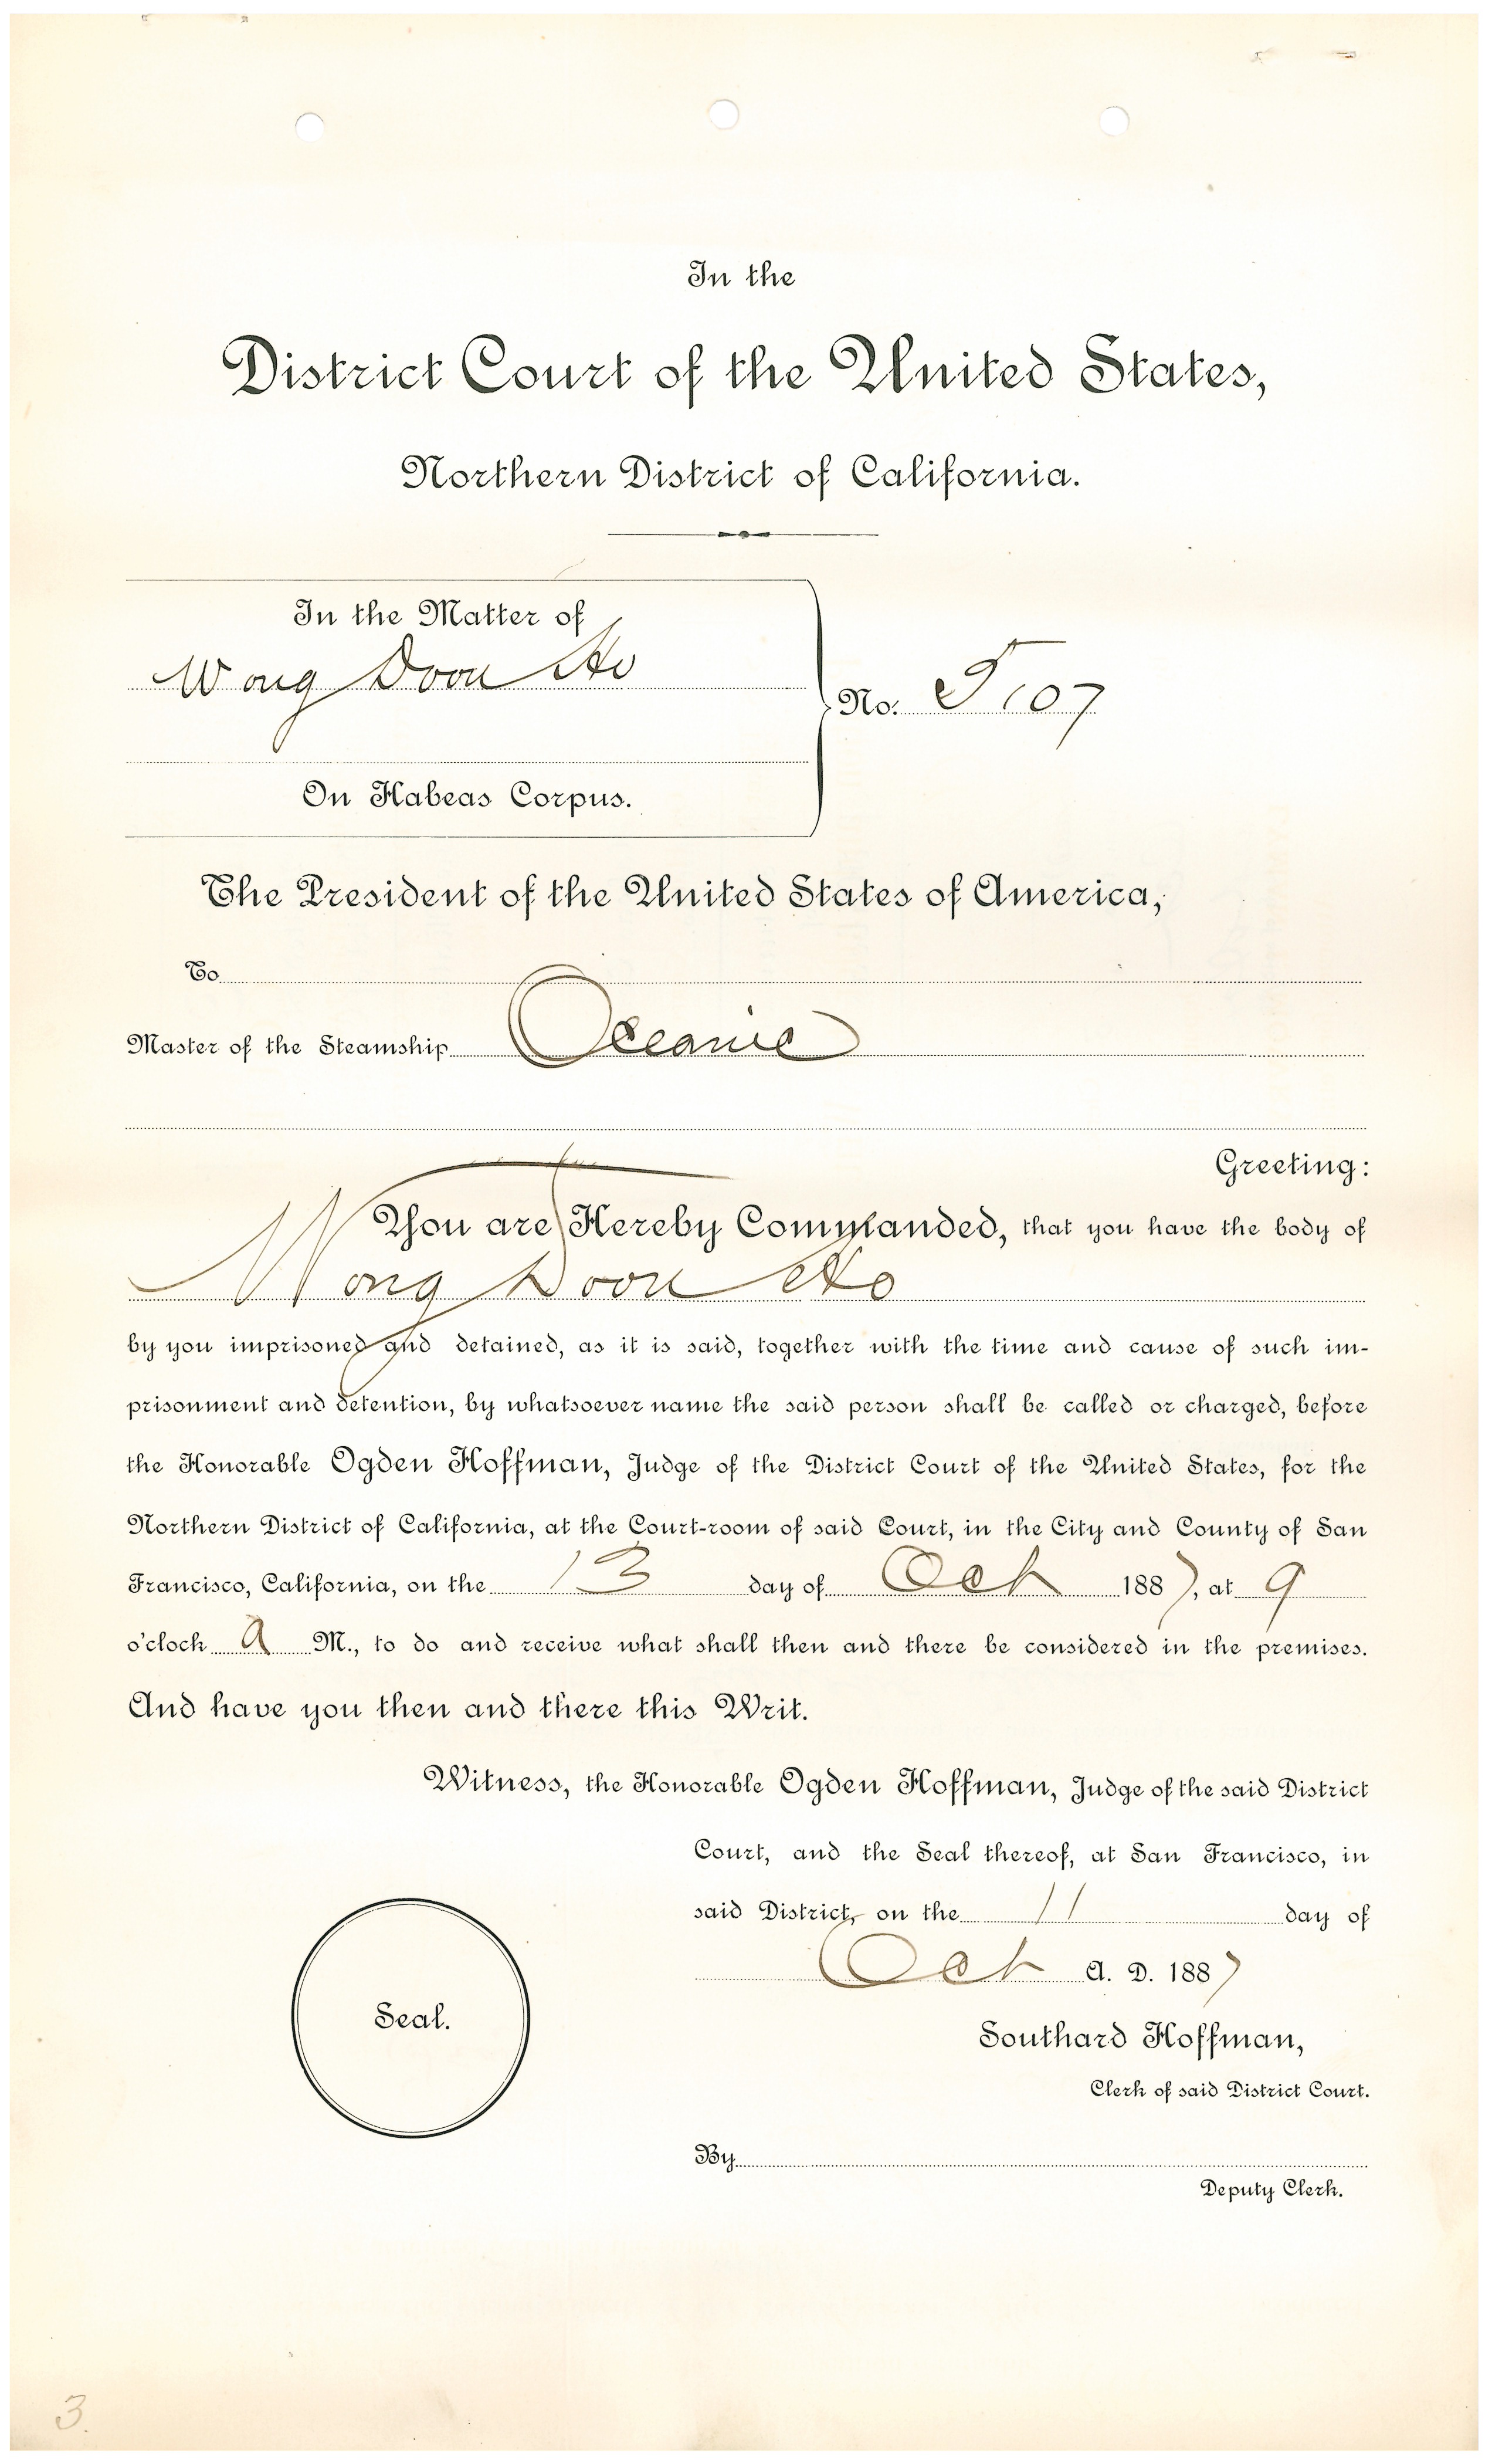 In the
District Court of the United States,
Northern District of California.
In the Matter of
Wong Doon Ho
No. 5107
On Habeas Corpus.
The President of the United States of America,
To
Master of the Steamship Oceanic
Greeting:
You are Hereby Commanded, that you have the body of
Wong Doon Ho
by you imprisoned and detained, as it is said, together with the time and cause of such im-
prisonment and detention, by whatsoever name the said person shall be called or charged, before
the Honorable Ogden Hoffman, Judge of the District Court of the United States, for the
Northern District of California, at the Court-room of said Court, in the City and County of San
Francisco, California, on the 13 day of Oct 1887, at 9
o'clock A M., to do and receive what shall then and there be considered in the premises.
And have you then and there this Writ.
Witness, the Honorable Ogden Hoffman, Judge of the said District
Court, and the Seal thereof, at San Francisco, in
said District, on the 11 day of
Oct A. D. 1887
Seal.
Southard Hoffman,
Clerk of said District Court.
By
Deputy Clerk.
3.